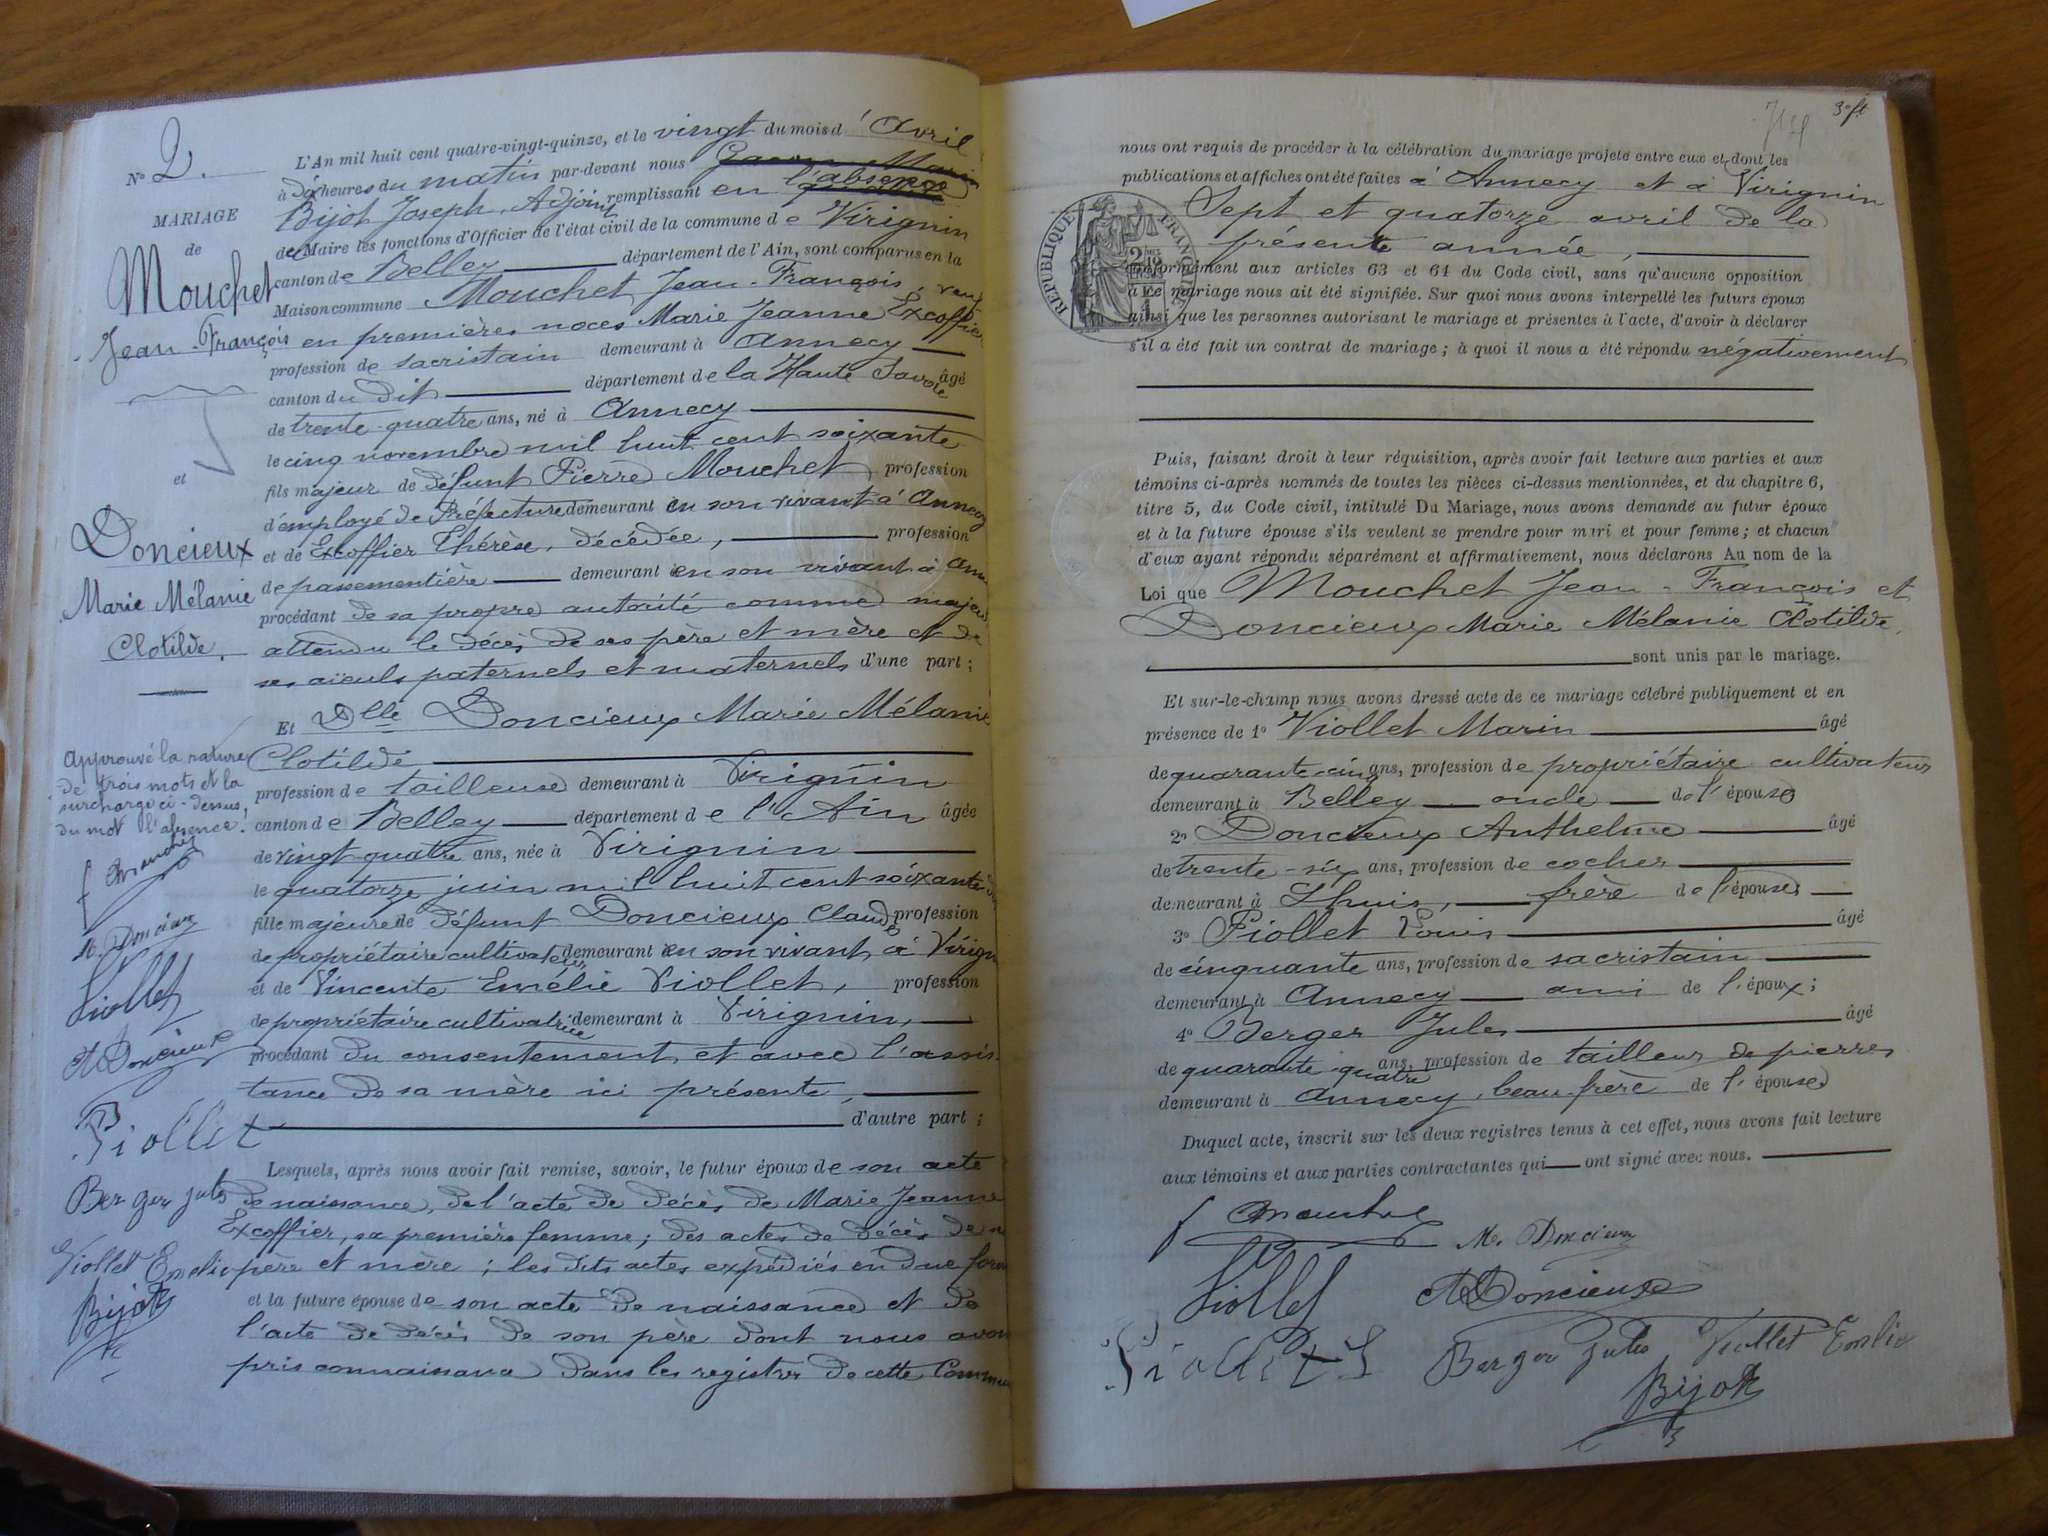 N° 2.
MARIAGE
de
Mouchet
Jean-François
et
Doncieux
Marie Mélanie
Clotilde.
Approuvé la rature
de trois mots et la
surcharge ci-dessus,
du mot l'absence.
M. Doncieux
Viollet
A Doncieux
Piollet
Berger Jules
Viollet Emélie
Bijot
L'An mil huit cent quatre-vingt-quinze, et le vingt du mois d'Avril
à dix heures du matin par-devant nous
Bijot Joseph, Adjoint remplissant en l'absence
de Maire les fonctions d'Officier de l'état civil de la commune de Virignin
canton de Belley département de l'Ain, sont comparus en la
Maison commune Mouchet Jean-François, veuf
en premières noces Marie Jeanne Excoffier
profession de sacristain demeurant à Annecy
canton du dit département de la Haute Savoie âgé
de trente-quatre ans, né à Annecy
le cinq novembre mil huit cent soixante
fils majeur de défunt Pierre Mouchet, profession
d'employé de Préfecture demeurant en son vivant à Annecy
et de Excoffier Thérèse, décédée, profession
de passementière demeurant en son vivant à Ann
procédant de sa propre autorité comme majeur
attendu le décès de ses père et mère et de
ses aieuls paternels et maternels d'une part;
Et Dlle Doncieux Marie Mélanie
Clotilde
profession de tailleuse demeurant à Virignin
canton de Belley département de l'Ain âgée
de vingt-quatre ans, née à Virignin
le quatorze juin mil huit cent soixante
fille majeure de défunt Doncieux Claude profession
de propriétaire cultivateur demeurant en son vivant à Virign
et de Vincente Emélie Viollet, profession
de propriétaire cultivatrice demeurant à Virignin,
procédant du consentement et avec l'assis
tance de sa mère ici présente,
d'autre part;
Lesquels, après nous avoir fait remise, savoir, le futur époux de son acte
de naissance, de l'acte de décès de Marie Jeanne
Excoffier, sa première femme; des actes de décès de s
père et mère; les dits actes expédiés en due form
et la future épouse de son acte de naissance et de
l'acte de décès de son père dont nous avon
pris connaissance dans les registres de cette Commun
nous ont requis de procéder à la célébration du mariage projeté entre eux et dont les
publications et affiches ont été faites à Annecy et à Virignin
Sept et quatorze avril de la
présente année,
RÉPUBLIQUE FRANÇAISE
conformément aux articles 63 et 64 du Code civil, sans qu'aucune opposition
à ce mariage nous ait été signifiée. Sur quoi nous avons interpellé les futurs époux
ainsi que les personnes autorisant le mariage et présentes à l'acte, d'avoir à déclarer
s'il a été fait un contrat de mariage; à quoi il nous a été répondu négativement
Puis, faisant droit à leur réquisition, après avoir fait lecture aux parties et aux
témoins ci-après nommés de toutes les pièces ci-dessus mentionnées, et du chapitre 6,
titre 5, du Code civil, intitulé Du Mariage, nous avons demandé au futur époux
et à la future épouse s'ils veulent se prendre pour mari et pour femme; et chacun
d'eux ayant répondu séparément et affirmativement, nous déclarons Au nom de la
Loi que Mouchet Jean-François et
Doncieux Marie Mélanie Clotilde,
sont unis par le mariage.
Et sur-le-champ nous avons dressé acte de ce mariage célébré publiquement et en
présence de 1° Viollet Marin âgé
de quarante-cinq ans, profession de propriétaire cultivateur
demeurant à Belley oncle de l'épouse
2° Doncieux Anthelme âgé
de trente-six ans, profession de cocher
demeurant à Lhuis, frère de l'épouse
3° Piollet Louis âgé
de cinquante ans, profession de sacristain
demeurant à Annecy ami de l'époux;
4° Berger Jules âgé
de quarante-quatre ans, profession de tailleur de pierres
demeurant à Annecy, beau-frère de l'épouse
Duquel acte, inscrit sur les deux registres tenus à cet effet, nous avons fait lecture
aux témoins et aux parties contractantes qui ont signé avec nous.
M. Doncieux
Viollet
A Doncieux
Piollet L
Berger Jules
Viollet Emélie
Bijot